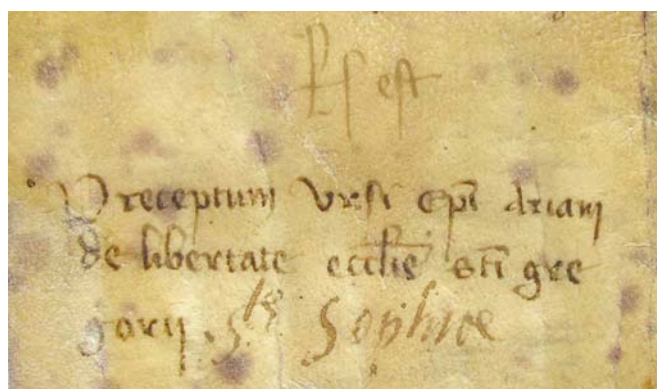 est
Preceptum Ursi epi Ariani
de libertate ecclie sti gre
gorii. ste Sophiae